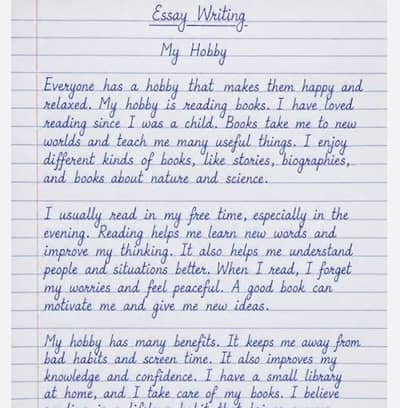 Essay Writing
My Hobby
Everyone has a hobby that makes them happy and
relaxed. My hobby is reading books. I have loved
reading since I was a child. Books take me to new
worlds and teach me many useful things. I enjoy
different kinds of books, like stories, biographies,
and books about nature and science.
I usually read in my free time, especially in the
evening. Reading helps me learn new words and
improve my thinking. It also helps me understand
people and situations better. When I read, I forget
my worries and feel peaceful. A good book can
motivate me and give me new ideas.
My hobby has many benefits. It keeps me away from
bad habits and screen time. It also improves my
knowledge and confidence. I have a small library
at home, and I take care of my books. I believe